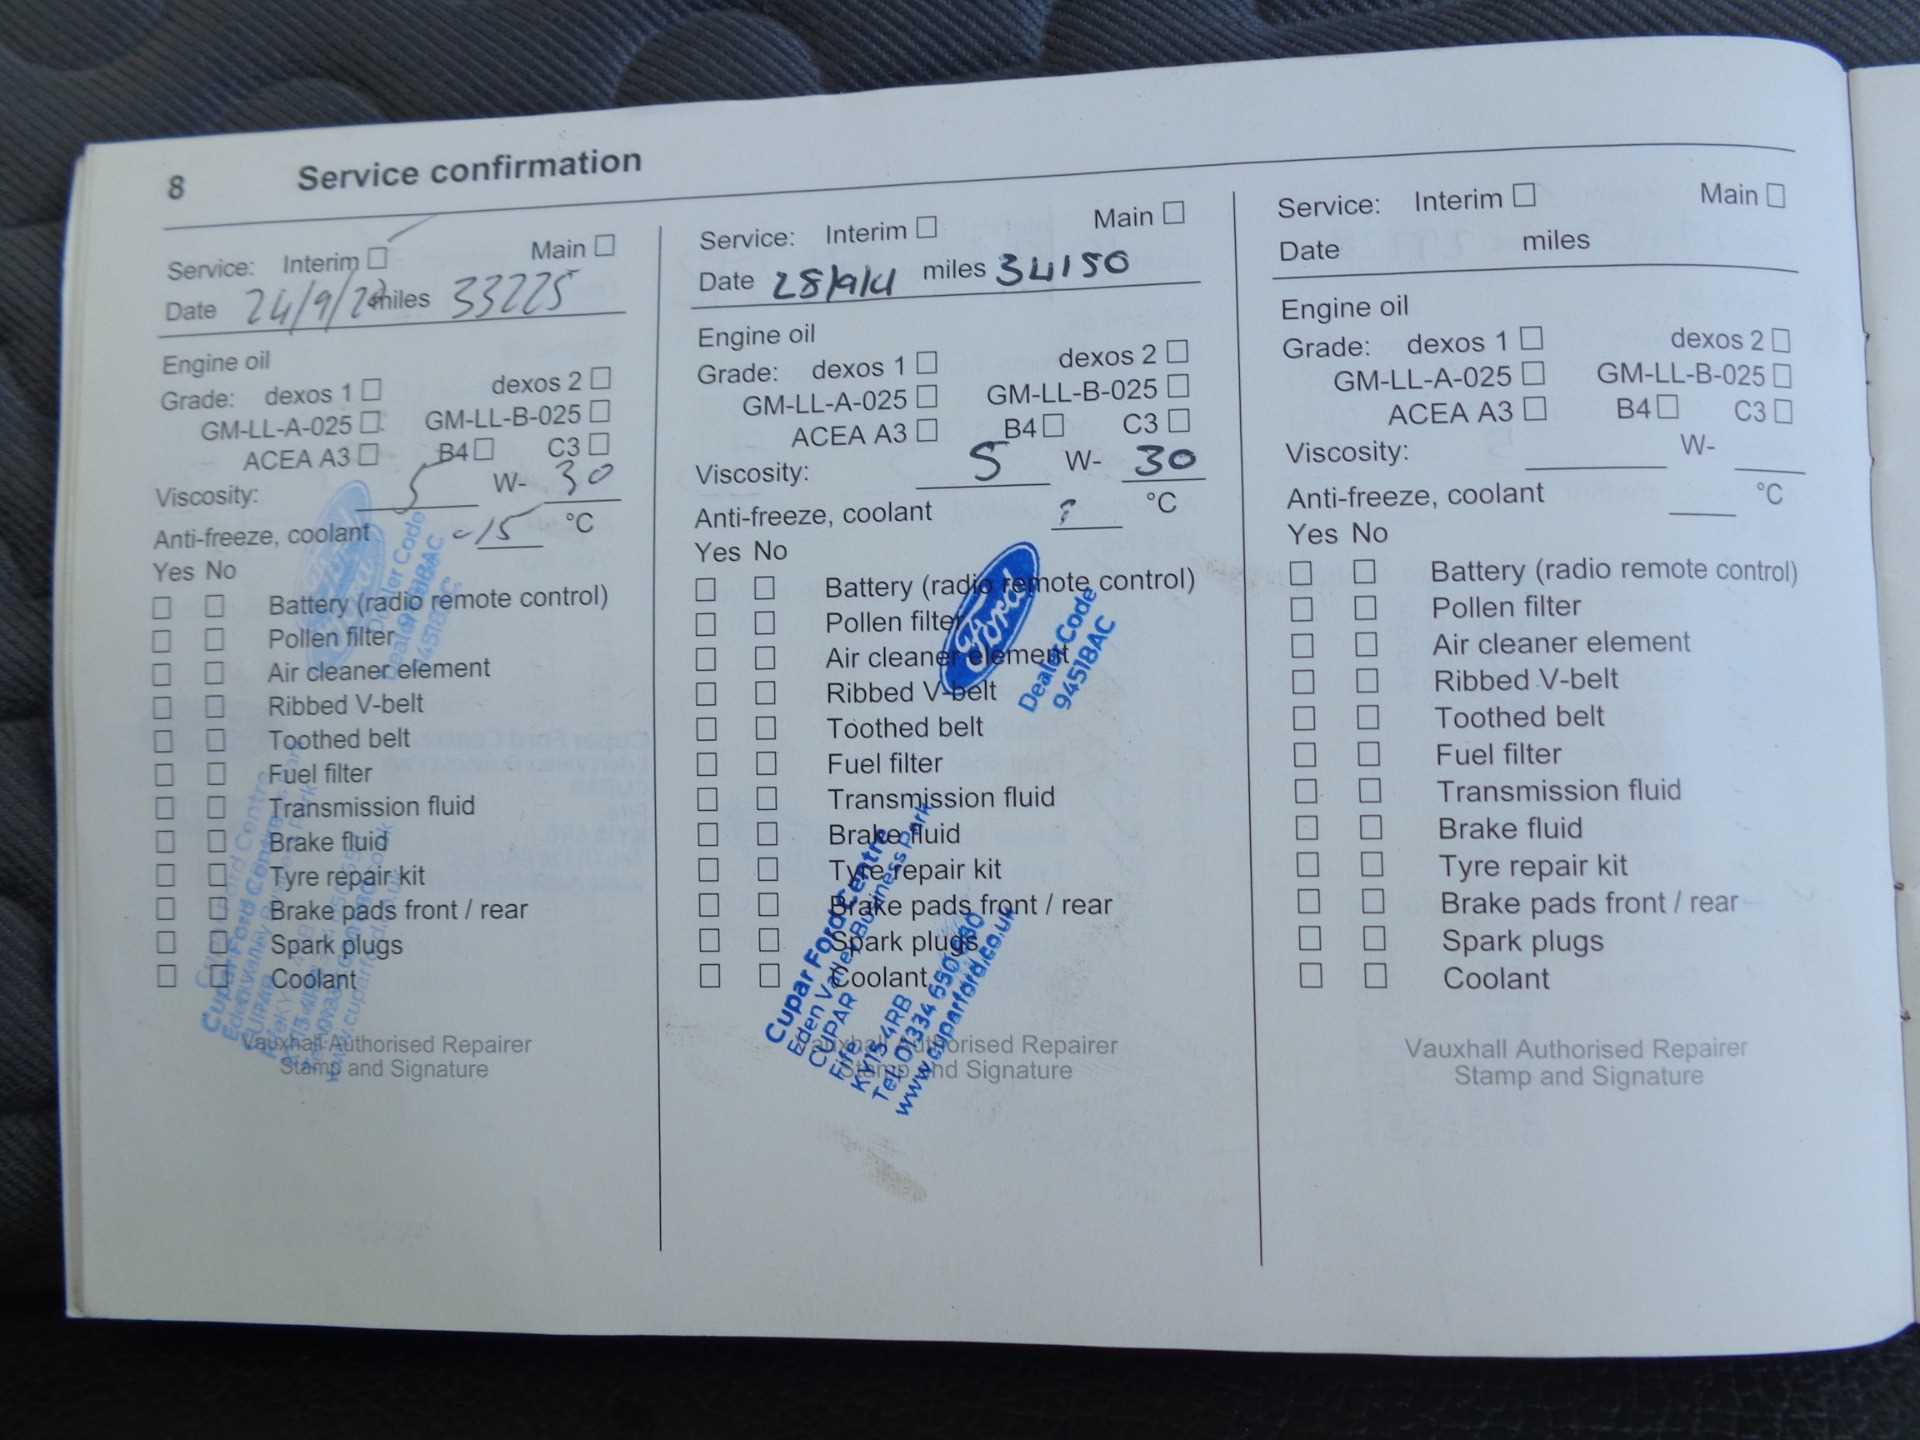 8 Service confirmation
Service: Interim Main
Date 24/9/ miles 33225
Engine oil
Grade: dexos 1 dexos 2
GM-LL-A-025 GM-LL-B-025
ACEA A3 B4 C3
Viscosity: 5 W- 30
Anti-freeze, coolant -15 °C
Yes No
Battery (radio remote control)
Pollen filter
Air cleaner element
Ribbed V-belt
Toothed belt
Fuel filter
Transmission fluid
Brake fluid
Tyre repair kit
Brake pads front / rear
Spark plugs
Coolant
Dealer Code
Cupar Ford Centre
Vauxhall Authorised Repairer
Stamp and Signature
Service: Interim Main
Date 28/9/21 miles 34150
Engine oil
Grade: dexos 1 dexos 2
GM-LL-A-025 GM-LL-B-025
ACEA A3 B4 C3
Viscosity: 5 W- 30
Anti-freeze, coolant ? °C
Yes No
Battery (radio remote control)
Pollen filter
Air cleaner element
Ribbed V-belt
Toothed belt
Fuel filter
Transmission fluid
Brake fluid
Tyre repair kit
Brake pads front / rear
Spark plugs
Coolant
Ford
Dealer Code
94518AC
Cupar Ford Centre
Eden Valley Business Park
CUPAR
Fife
KY15 4RB
Tel: 01334 650
www.cuparford.co.uk
Vauxhall Authorised Repairer
Stamp and Signature
Service: Interim Main
Date miles
Engine oil
Grade: dexos 1 dexos 2
GM-LL-A-025 GM-LL-B-025
ACEA A3 B4 C3
Viscosity: W-
Anti-freeze, coolant °C
Yes No
Battery (radio remote control)
Pollen filter
Air cleaner element
Ribbed V-belt
Toothed belt
Fuel filter
Transmission fluid
Brake fluid
Tyre repair kit
Brake pads front / rear
Spark plugs
Coolant
Vauxhall Authorised Repairer
Stamp and Signature